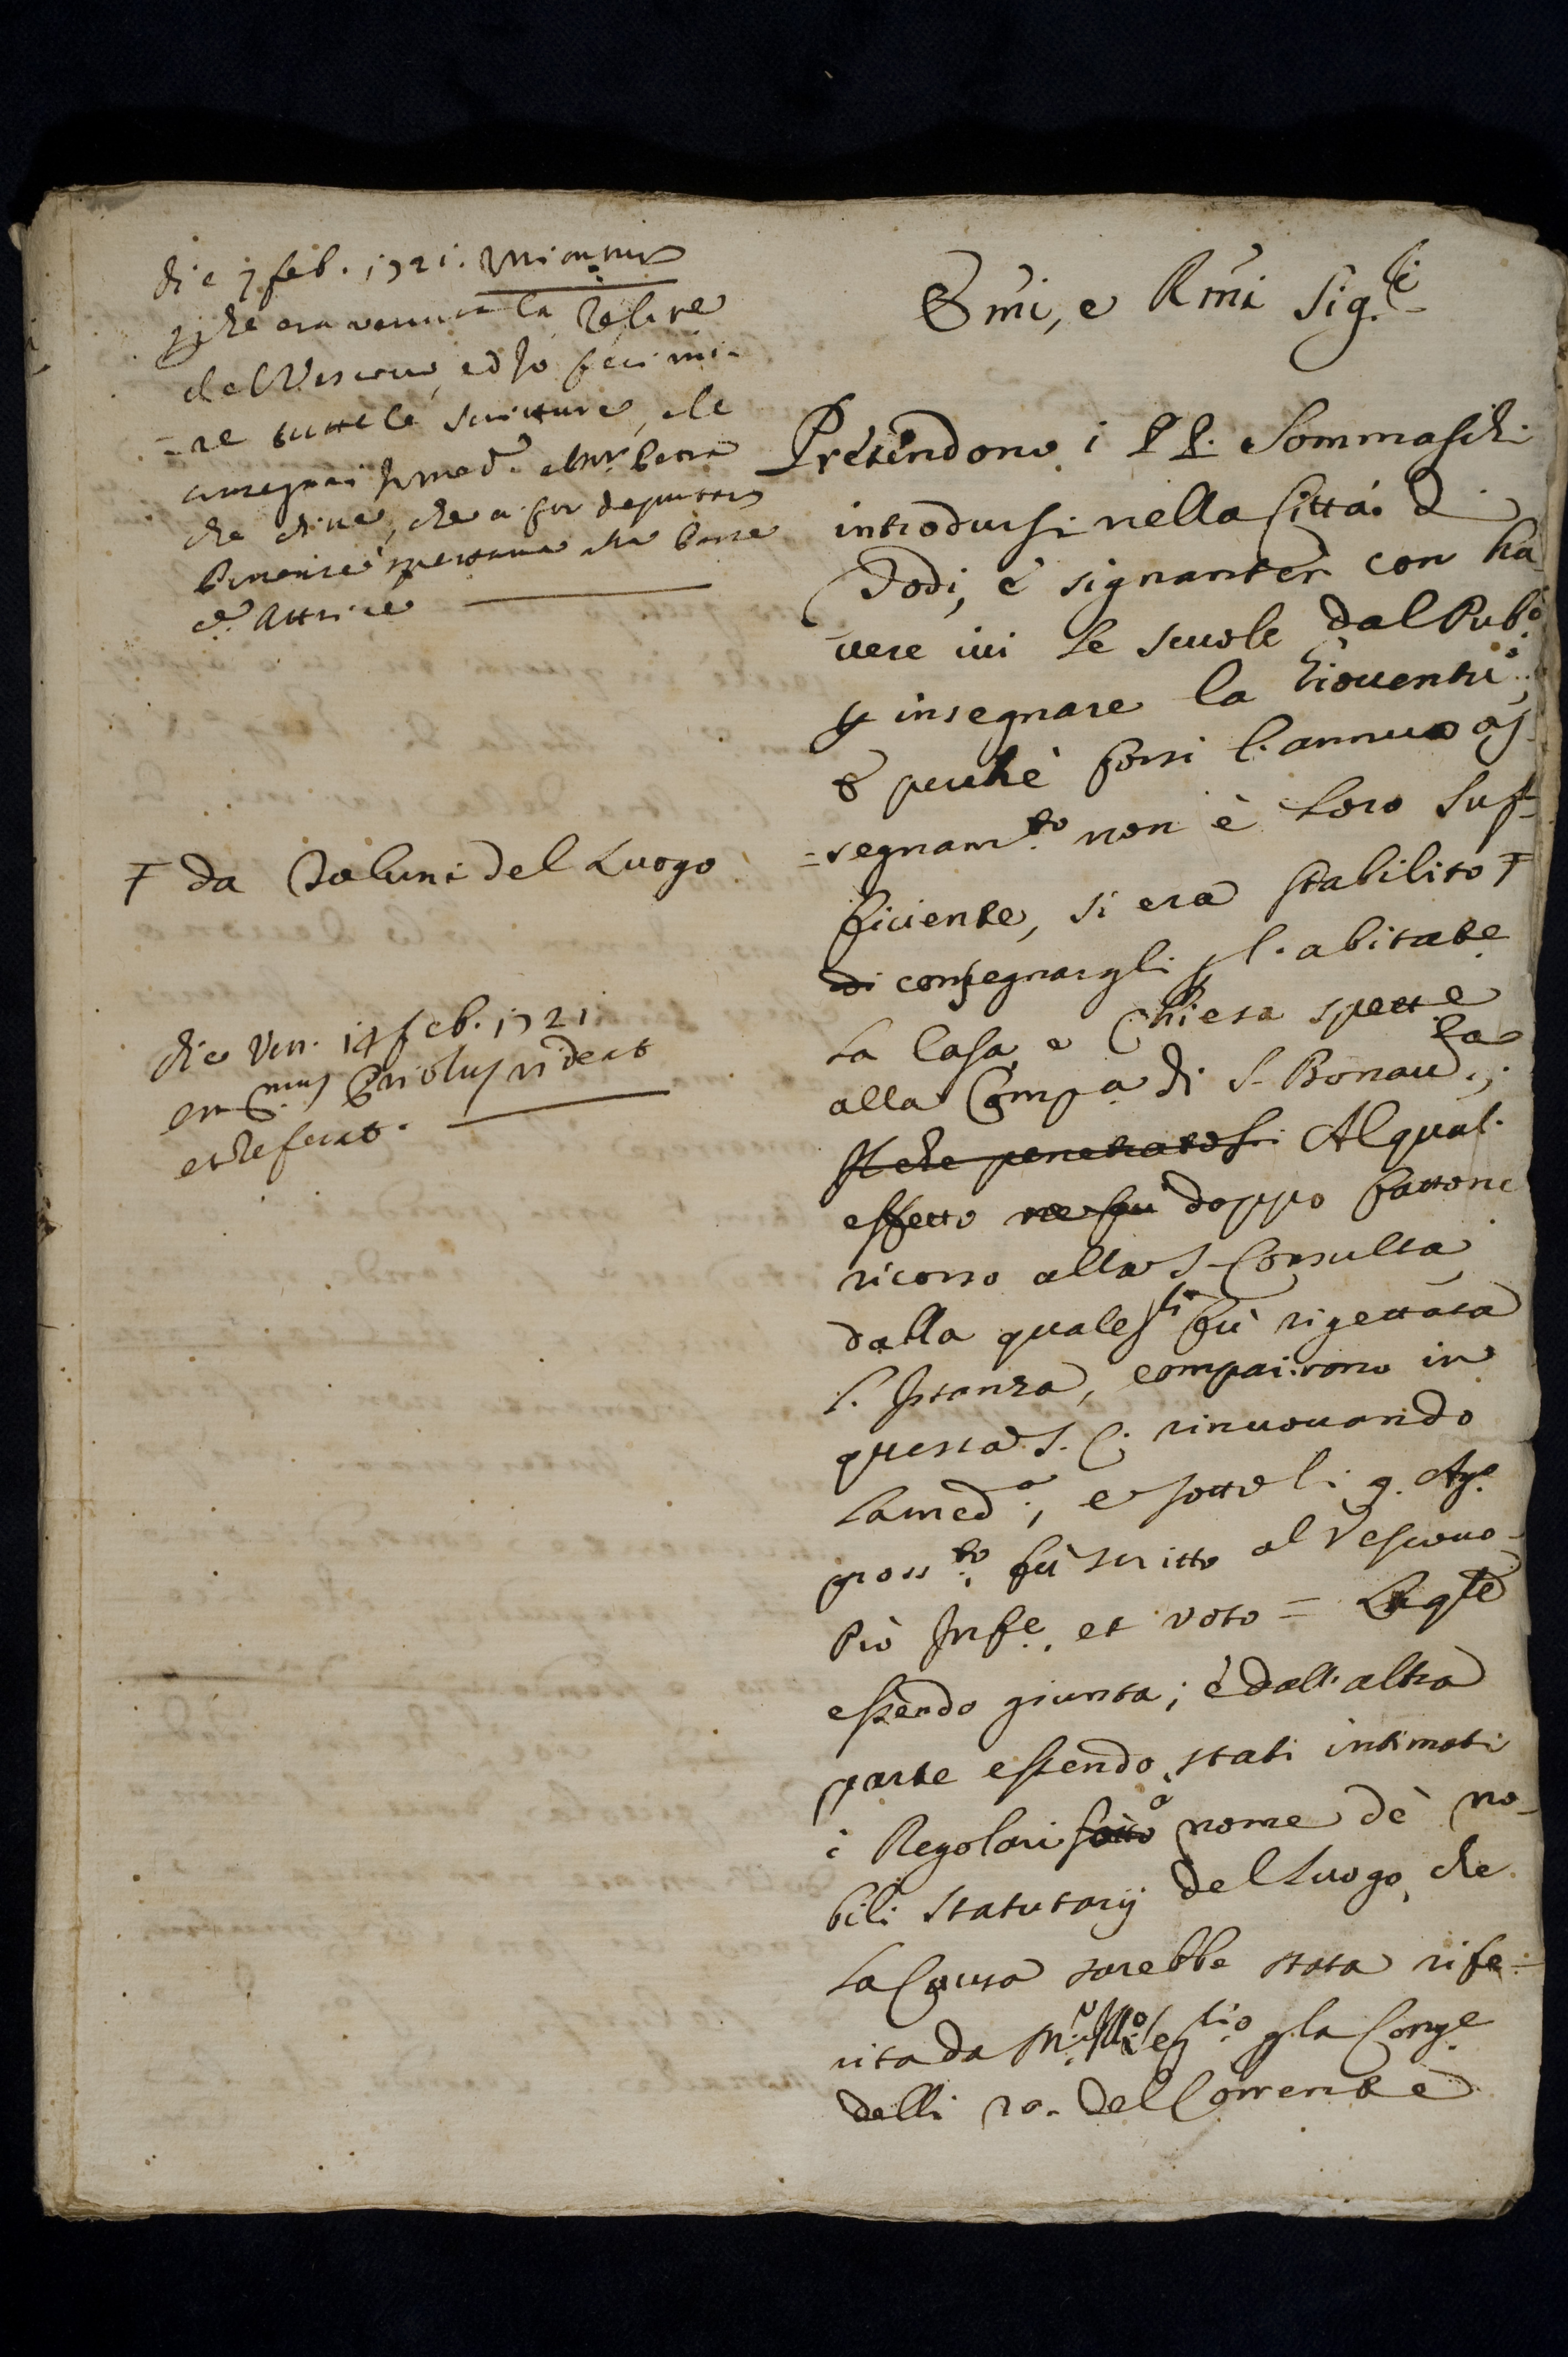 die 7 feb. 1721.
che era venuta la Relne
del Vescovo, ed Io feci uni-
=re tutte le scritture, e le
consegnai
che disse, che a
die Ven. 14 feb. 1721
videat
et referat.
Ŧ da Taluni del Luogo
Emi, e Rmi Sig.ri
Pretendono i PP. Sommaschi
introdursi nella Città di
Todi, e signanter con ha
uere iui le scuole dal Pubo
p insegnare la Giouentù;
E perchè forsi l'annuo as-
=segnam.to non è loro suf-
ficiente, si era stabilito Ŧ
di consegnargli p l'abitate
La Casa e Chiesa spett.e
alla Compa di S. Bonau.ra;
Il che penetratosi Al qual'
effetto ne fu doppo fattone
ricorso alla S. Consulta
dalla quale fù rigettata
l'Istanza, comparirono in
questa S. C. rinuouando
La med.a, e sotto li 9. Ag.o
pross.to fù scritto al Vescouo-
Prò Infe. et voto = La qle
essendo giunta; è dall'altra
parte essendo stati intimati
i Regolari sotto a nome dè no-
bili Statutarij del Luogo, che
La Causa sarebbe stata rife=
rita da p la Cong.e
delli 20. del Corrente